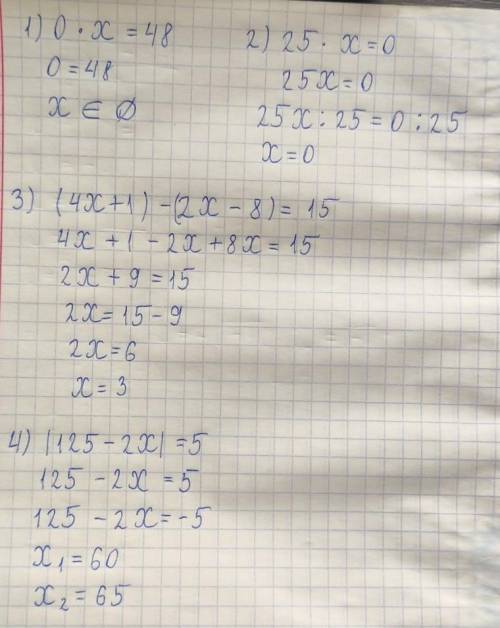 1) 0 · x = 48
0 = 48
x ∈ ∅
2) 25 · x = 0
25x = 0
25x : 25 = 0 : 25
x = 0
3) (4x + 1) - (2x - 8) = 15
4x + 1 - 2x + 8x = 15
2x + 9 = 15
2x = 15 - 9
2x = 6
x = 3
4) |125 - 2x| = 5
125 - 2x = 5
125 - 2x = -5
x₁ = 60
x₂ = 65